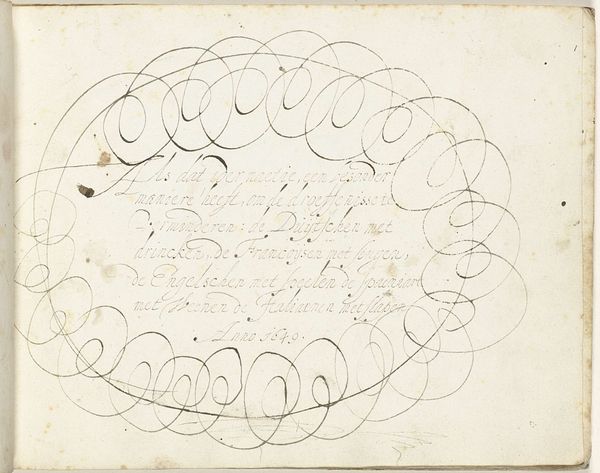 Als dat yder natie, een besonder
maniere heeft, om de droeffenisse te
verminderen: de Duijtschen met
drincken, de Francoysen met singen,
de Engelschen met speelen de Spaniaert
met Weenen de Italianen met slapen
Anno 1649.